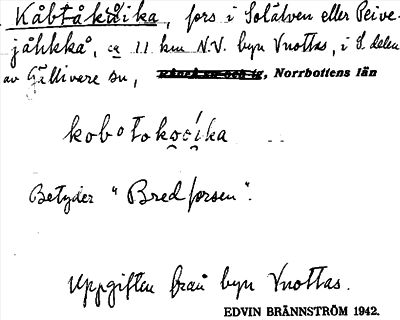 Kåbtåkåika, fors i Solälven eller Peive-
jåhkkå, ca 11 km N.V. byn Vnottas, i S. delen
av Gällivere sn, Norrbottens län
Betyder "Bredforsen".
Uppgiften från byn Vnottas.
EDVIN BRÄNNSTRÖM 1942.